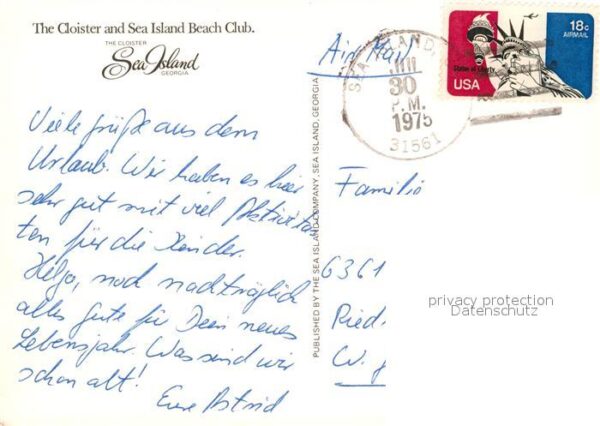 The Cloister and Sea Island Beach Club.
THE CLOISTER
Sea Island
GEORGIA
Viele Grüße aus dem
Urlaub. Wir haben es hier
sehr gut mit viel Aktivitä-
ten für die Kinder.
Helga, noch nachträglich
alles Gute für Dein neues
Lebensjahr. Was sind wir
schon alt!
Eure Astrid
PUBLISHED BY THE SEA ISLAND COMPANY, SEA ISLAND, GEORGIA
Air Mail
SEA ISLAND,
30
P.M.
1975
31561
18c
AIRMAIL
Statue of Liberty
USA
Familie
6361
Ried-
W.
privacy protection
Datenschutz